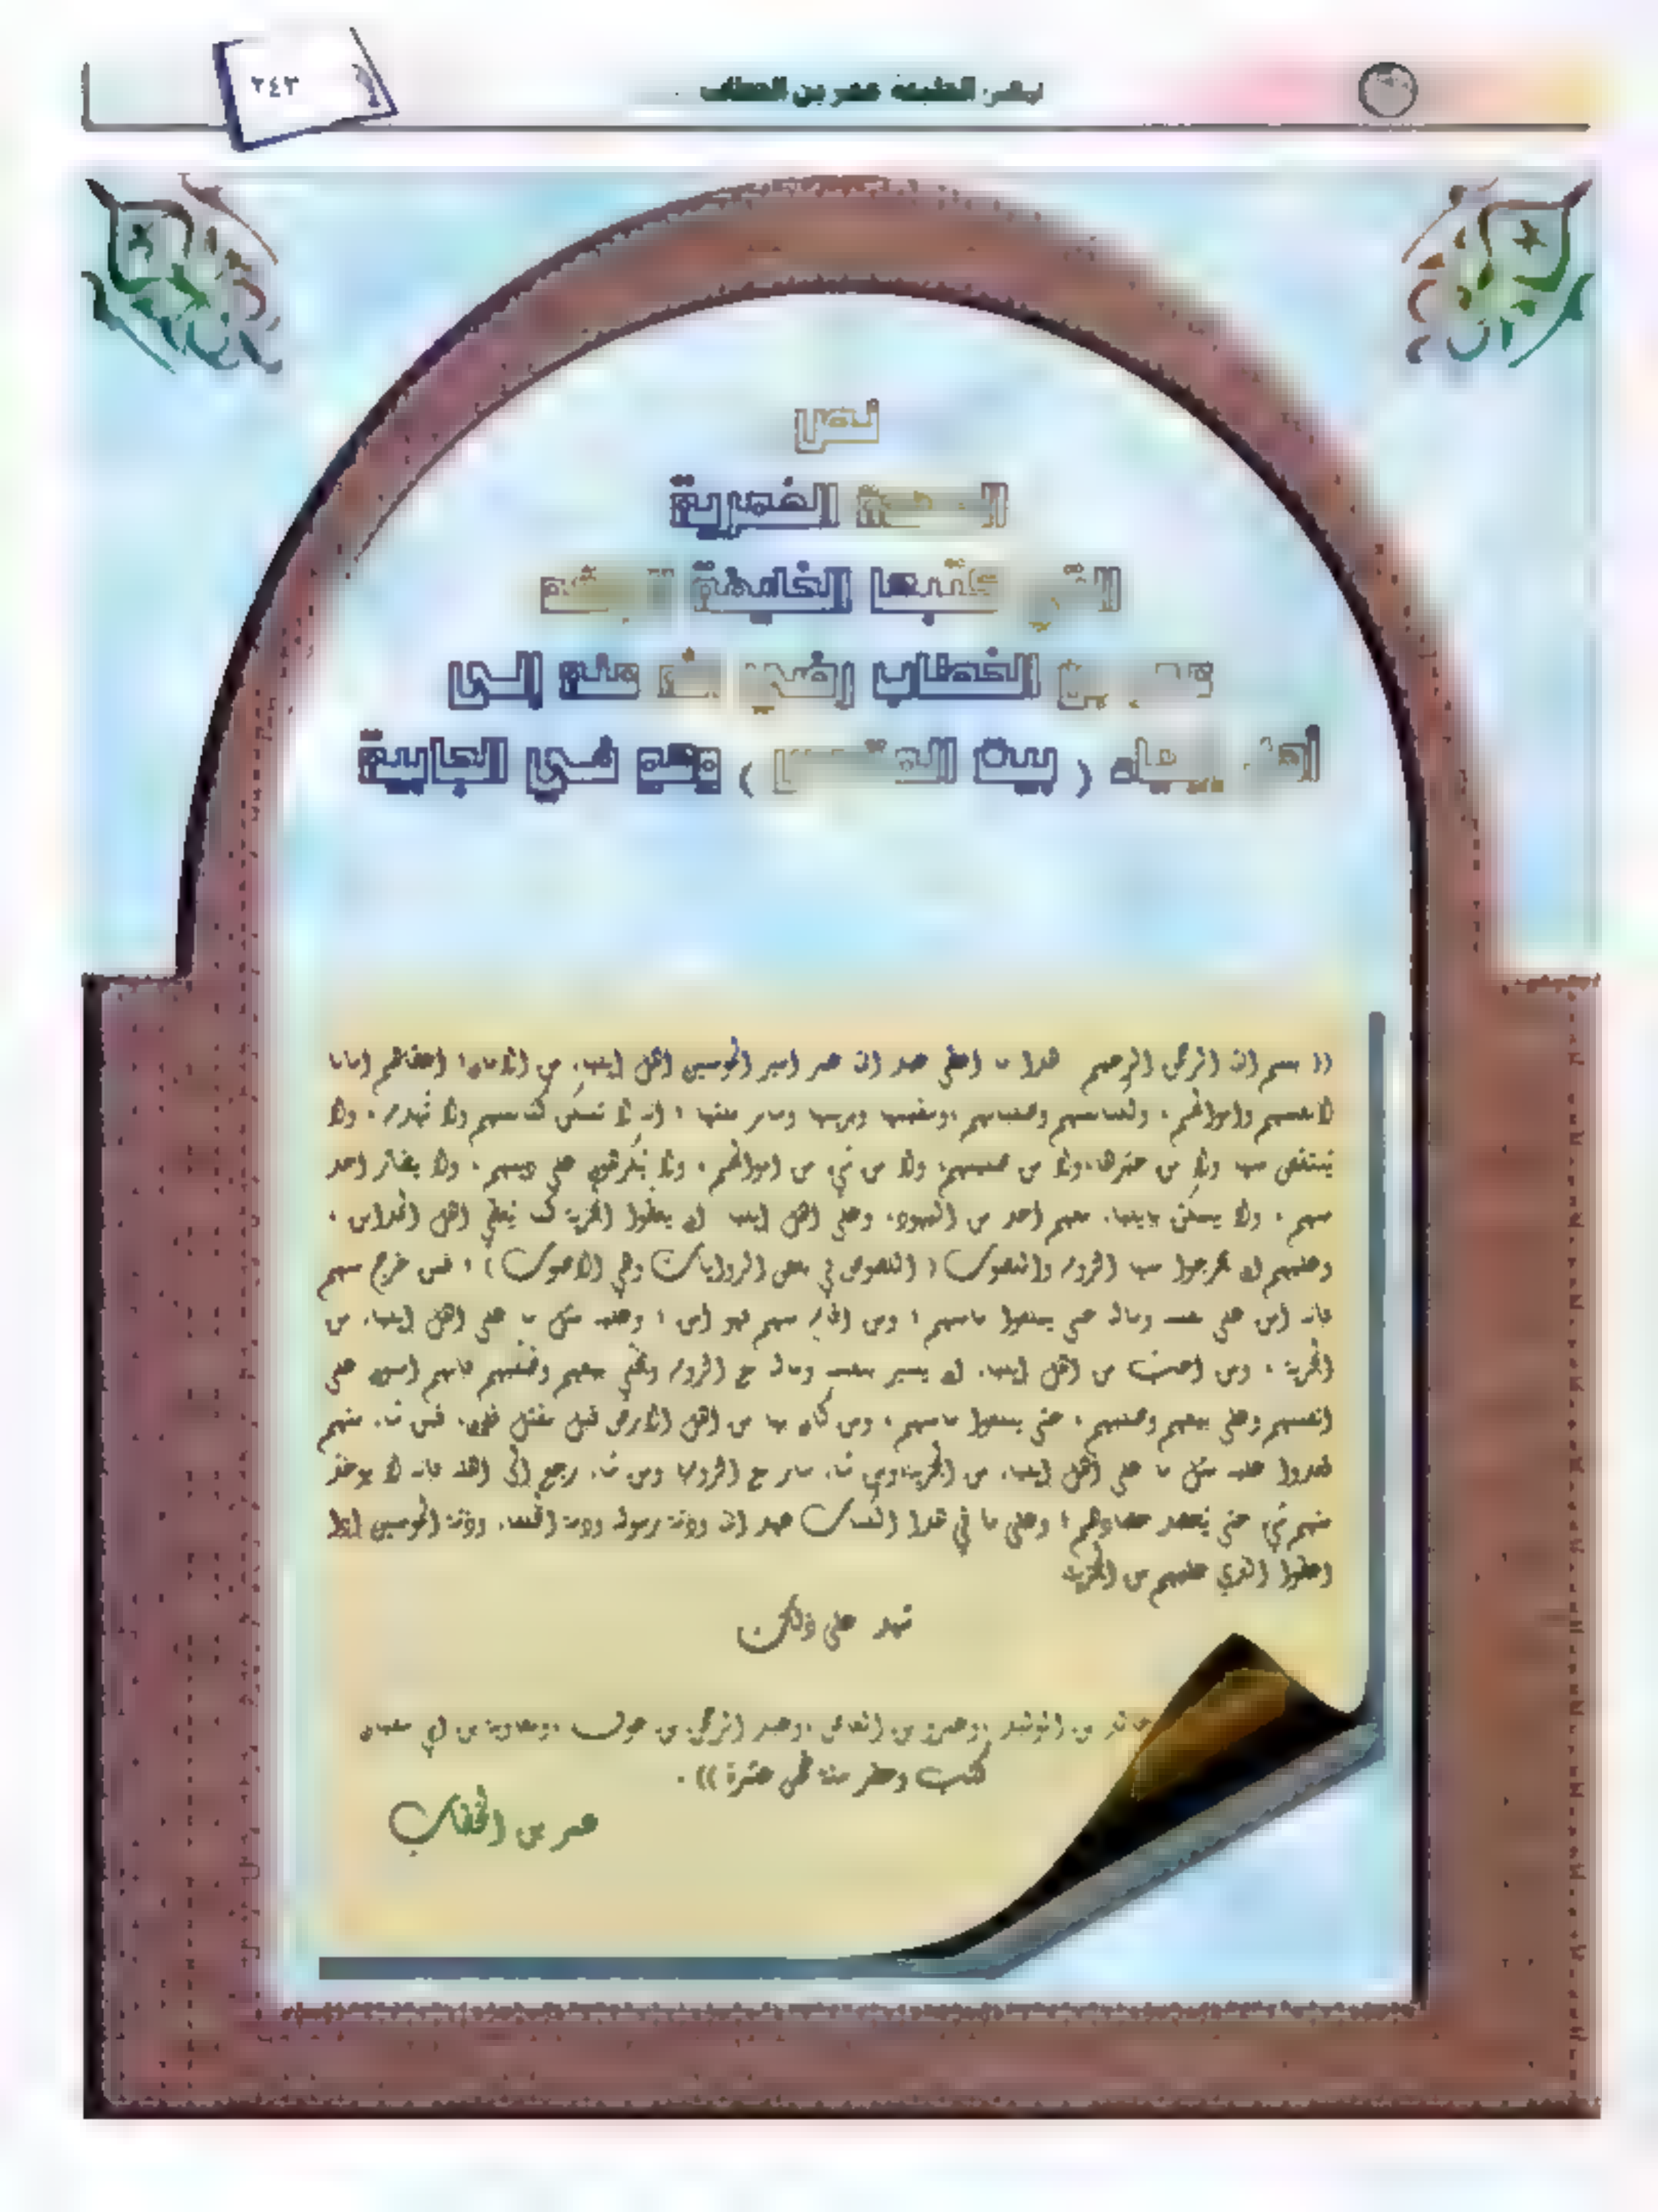 ٢٤٣
الخليفة عمر بن الخطاب
نص
العمرية
التي كتبها الخليفة
عمر بن الخطاب رضي الله عنه إلى
أهل إيلياء ( بيت المقدس ) وهو في الجابية
(( بسم الله الرحمن الرحيم هذا ما اعطى عبد الله عمر امير المؤمنين اهل إيلياء من الامان؛ اعطاهم امانا
لانفسهم واموالهم، ولكنائسهم وصلبانهم، وسقيمها وبريئها وسائر ملتها؛ انه لا تسكن كنائسهم ولا تُهدم، ولا
يُنتقص منها ولا من حيزها، ولا من صليبهم، ولا من شيء من اموالهم، ولا يُكرهون على دينهم، ولا يضار احد
منهم، ولا يسكن بإيلياء معهم احد من اليهود، وعلى اهل إيلياء ان يعطوا الجزية كما يُعطي اهل المدائن،
وعليهم ان يخرجوا منها الروم واللصوت ( اللصوص في بعض الروايات وهي الاصوب )؛ فمن خرج منهم
فانه امن على نفسه وماله حتى يبلغوا مامنهم؛ ومن اقام منهم فهو امن؛ وعليه مثل ما على اهل إيلياء من
الجزية، ومن احب من اهل إيلياء ان يسير بنفسه وماله مع الروم ويخلي بيعهم وصلبهم فانهم امنون على
انفسهم وعلى بيعهم وصلبهم، حتى يبلغوا مامنهم، ومن كان بها من اهل الارض قبل مقتل فلان، فمن شاء منهم
قعدوا عليه مثل ما على اهل إيلياء من الجزية، ومن شاء سار مع الروم، ومن شاء رجع إلى اهله فانه لا يوخذ
منهم شيء حتى يُحصد حصادهم؛ وعلى ما في هذا الكتاب عهد الله وذمة رسوله وذمة الخلفاء وذمة المؤمنين إذا
اعطوا الذي عليهم من الجزية
شهد على ذلك
خالد بن الوليد، وعمرو بن العاص، وعبد الرحمن بن عوف، ومعاوية بن ابي سفيان
كتب وحضر سنة خمس عشرة )).
عمر بن الخطاب